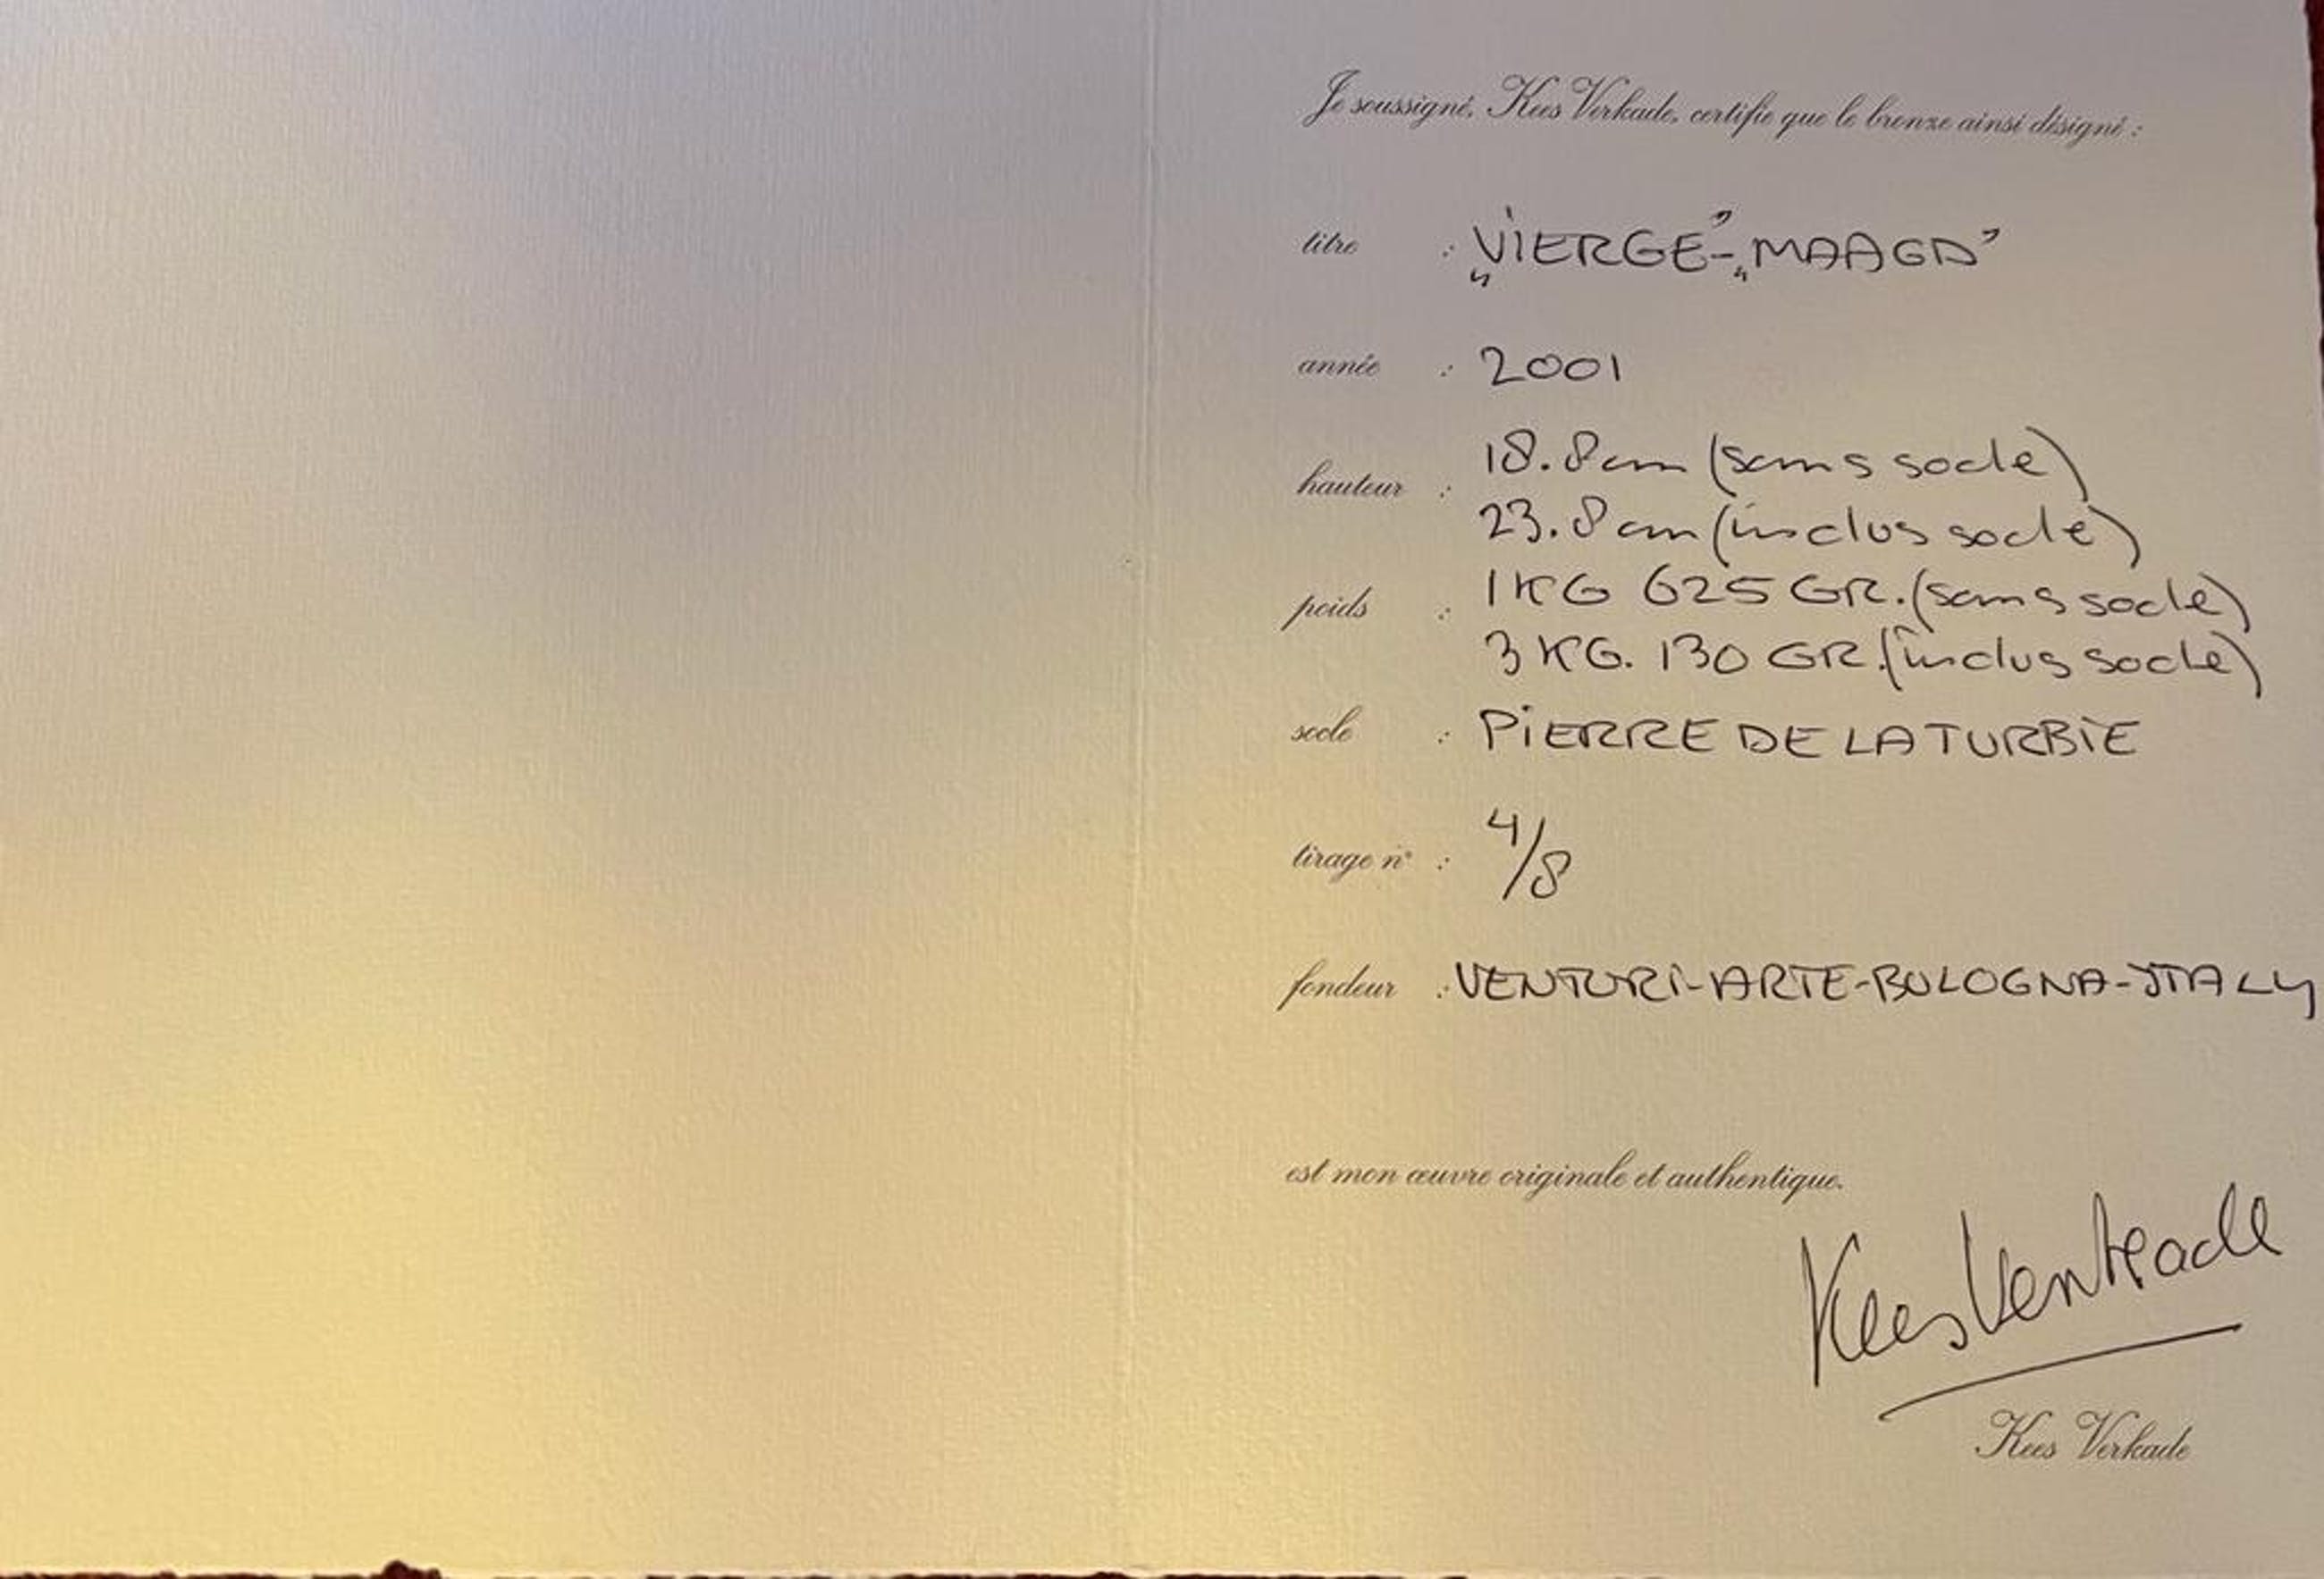 Je soussigné, Kees Verkade, certifie que le bronze ainsi désigné :
titre : „VIERGE”-„MAAGD”
année : 2001
hauteur : 18.8cm (sans socle)
23.8cm (inclus socle)
poids : 1KG 625 GR. (sans socle)
3KG. 130 GR. (inclus socle)
socle : PIERRE DE LA TURBIE
tirage n° : 4/8
fondeur : VENTURI-ARTE-BOLOGNA-ITALY
est mon œuvre originale et authentique.
Kees Verkade
Kees Verkade